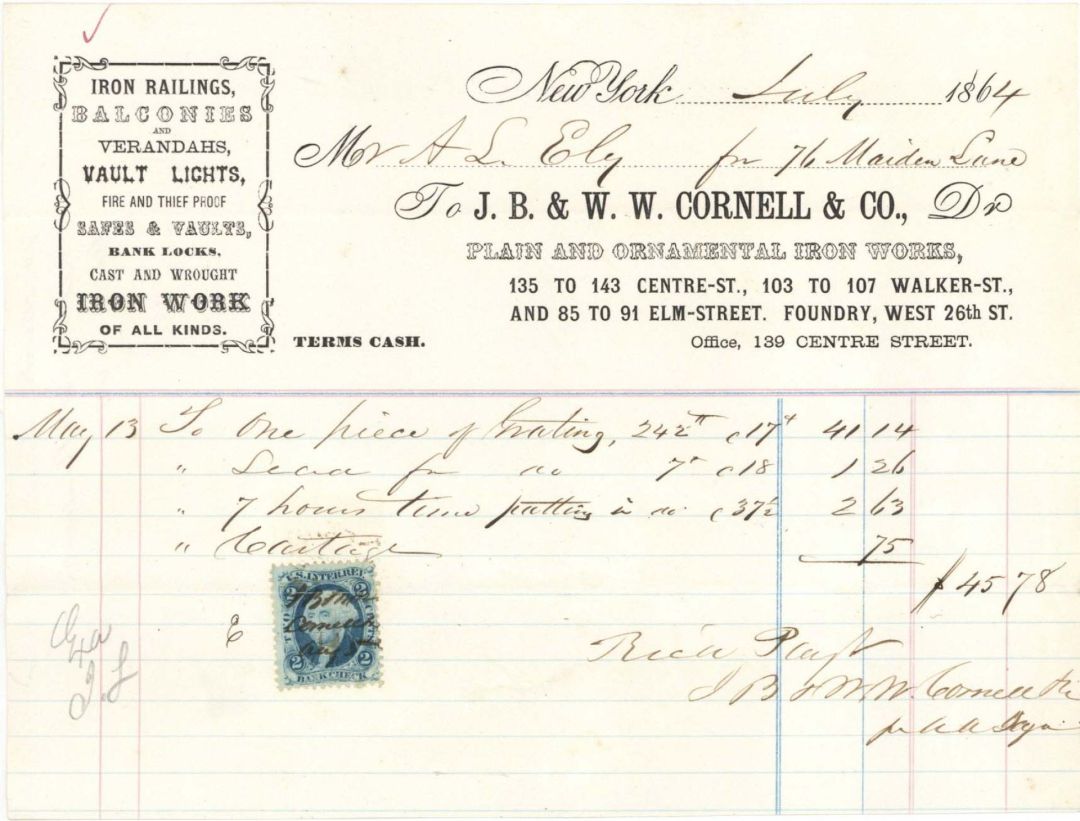 IRON RAILINGS,
BALCONIES
AND
VERANDAHS,
VAULT LIGHTS,
FIRE AND THIEF PROOF
SAFES & VAULTS,
BANK LOCKS,
CAST AND WROUGHT
IRON WORK
OF ALL KINDS.
New York July 1864
Mr A L. Ely for 76 Maiden Lane
To J. B. & W. W. CORNELL & CO., Dr
PLAIN AND ORNAMENTAL IRON WORKS,
135 TO 143 CENTRE-ST., 103 TO 107 WALKER-ST.,
AND 85 TO 91 ELM-STREET. FOUNDRY, WEST 26th ST.
TERMS CASH. Office, 139 CENTRE STREET.
May 13 To One piece of Grating, 242 c17 41 14
" Lead for do 7 c18 1 26
" 7 hours time putting in do c37½ 2 63
" Cartage 75
$ 45 78
U.S. INTER. REV.
TWO CENTS
2 2
BANK CHECK
Cornell
E
Rec'd Payt
J B & W W. Cornell & Co